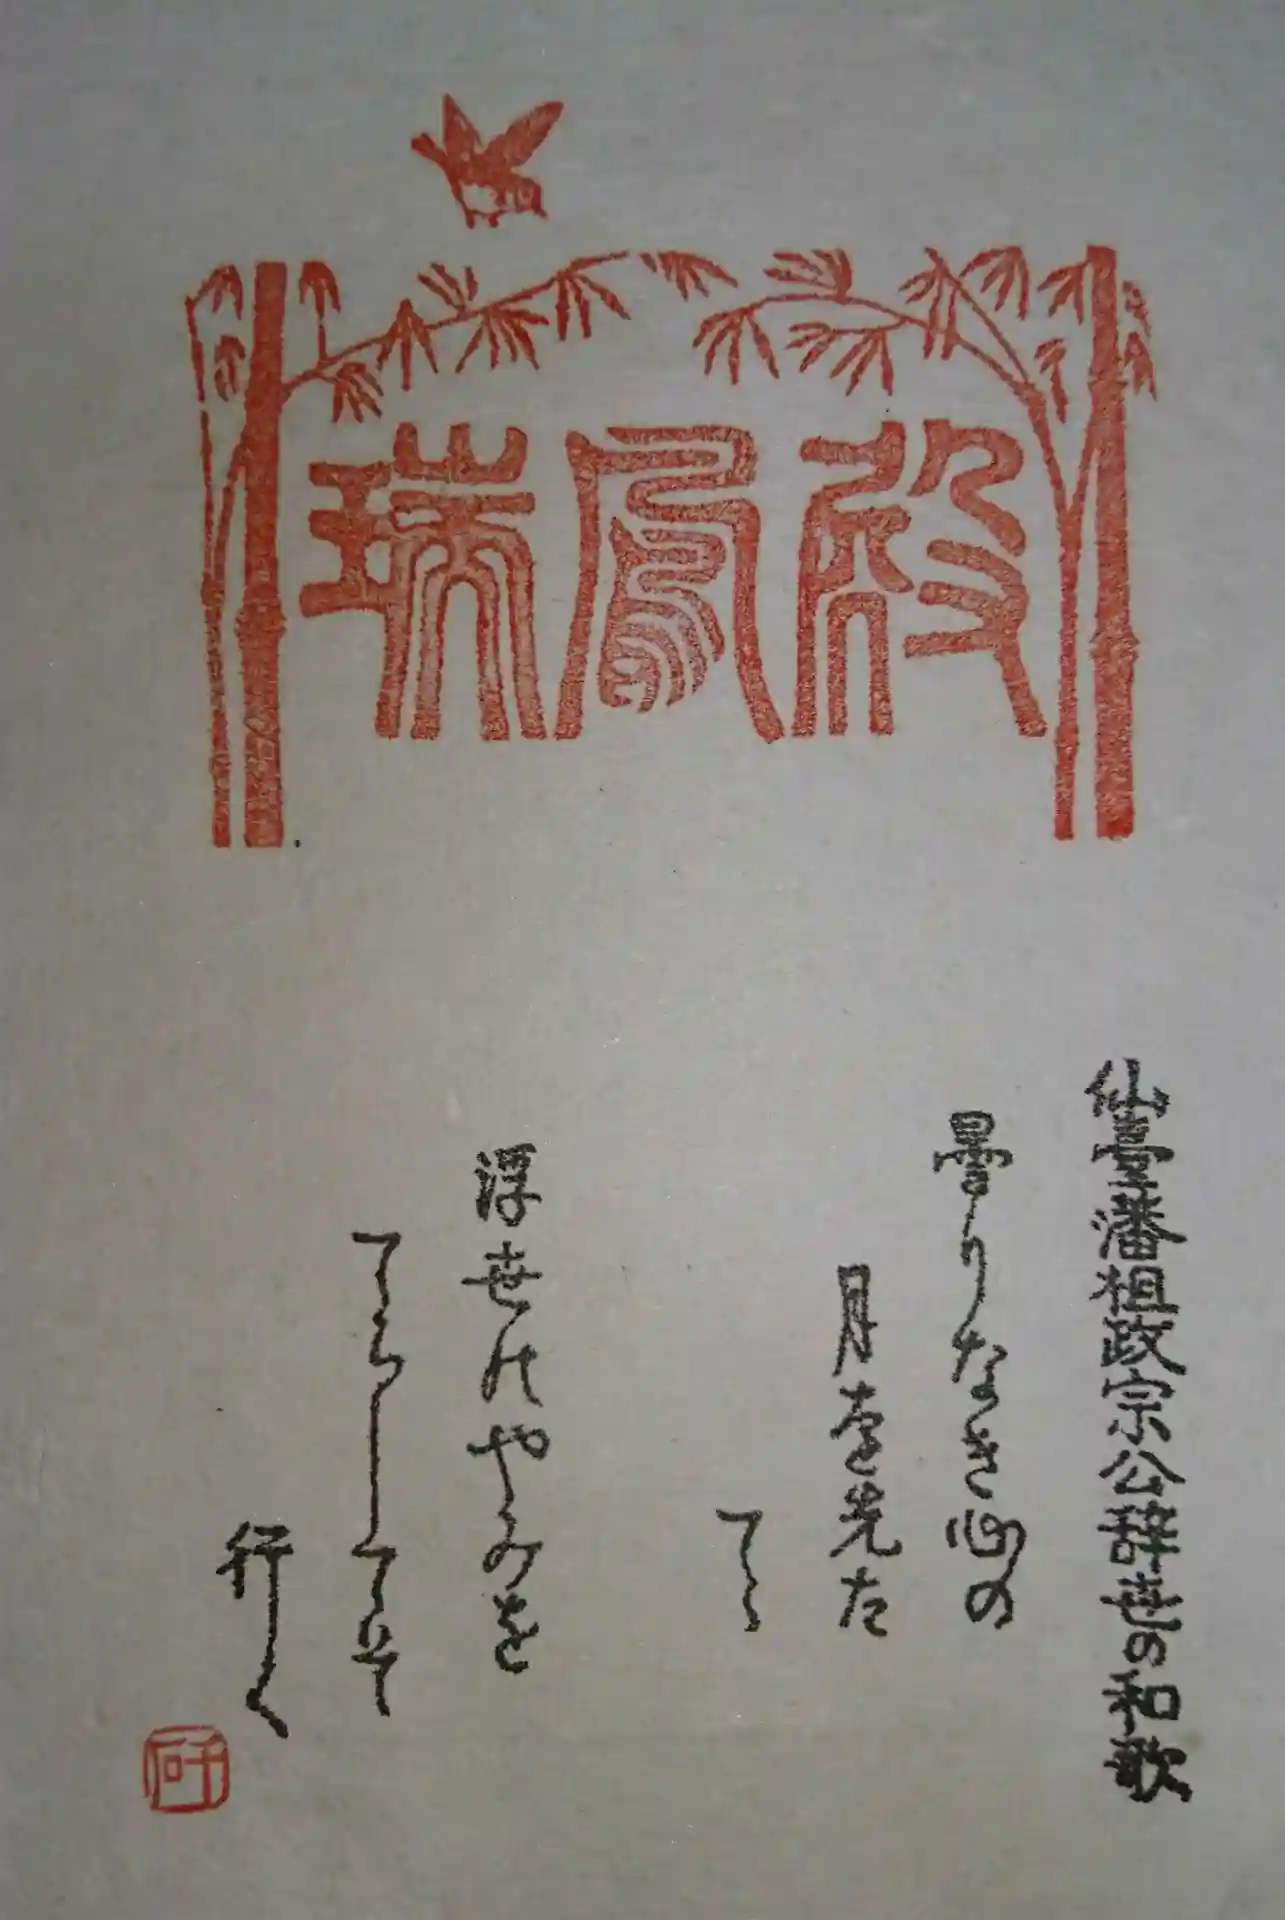 瑞鳳殿
仙臺藩祖政宗公辞世の和歌
曇りなき心の
月を先た
てゝ
浮世のやみを
てらしてそ
行く